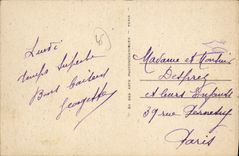 Lundi
temps superbe
Bons baisers
Georgette
Madame et Monsieur
Desprez
et leurs Enfants
39 rue
Paris